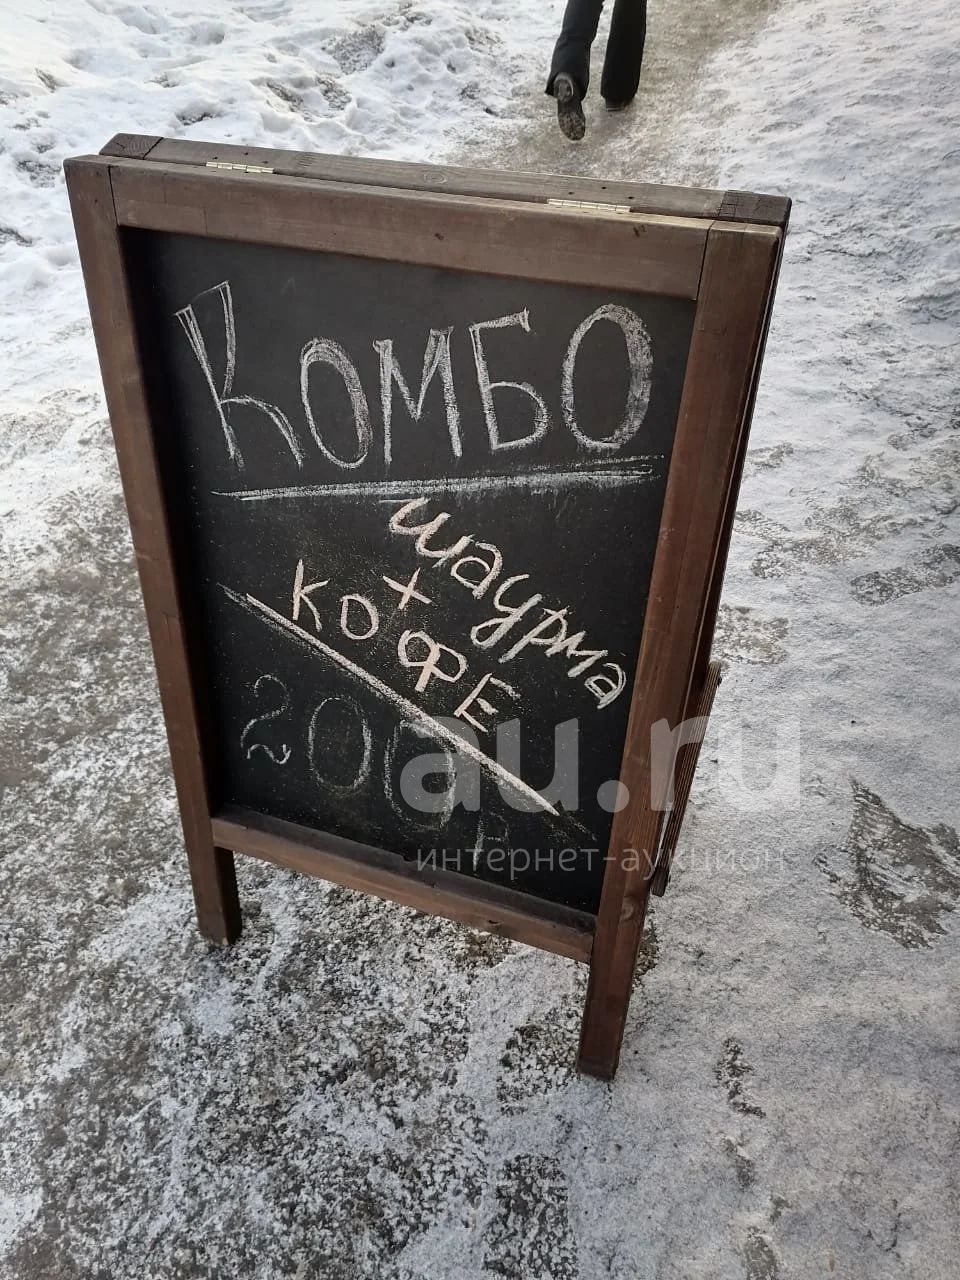 Комбо
шаурма
+
кофе
200р
au.ru
интернет-аукцион